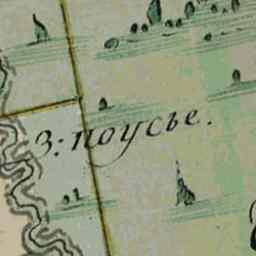 З: поусье.